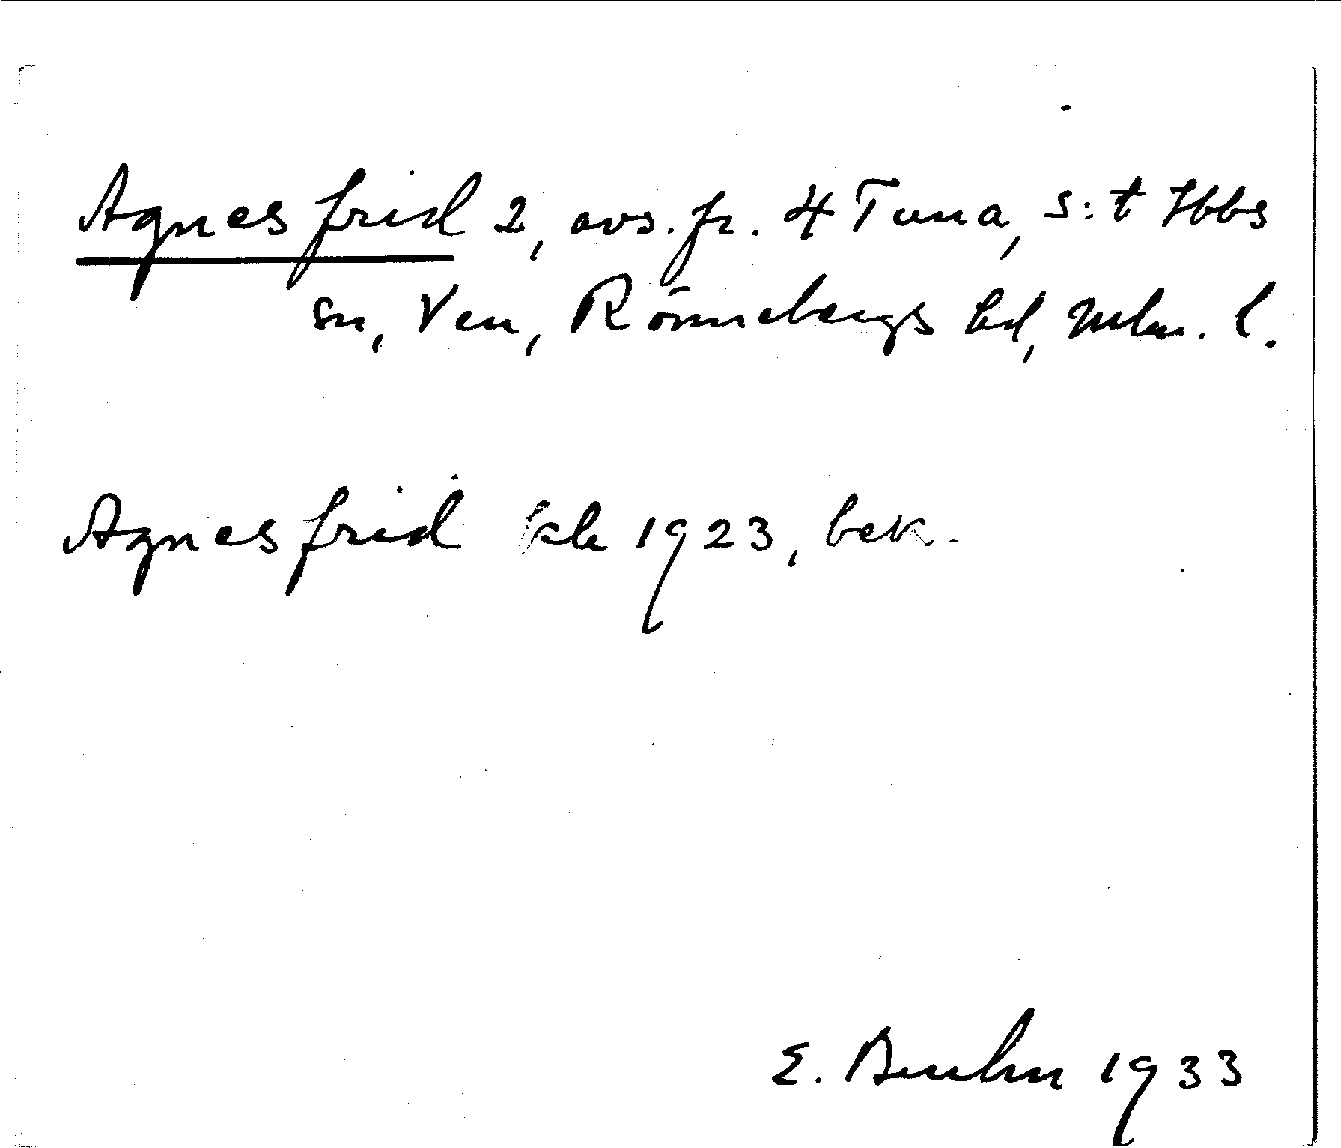 Agnesfrid 2, avs. fr. 4 Tuna, S:t Ibbs
sn, Ven, Rönnebergs hd, Mlm. l.
Agnesfrid 1923, bek.
E. 1933